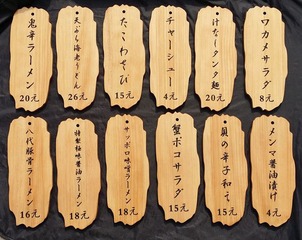 鬼辛ラーメン
20元
天ぷら海老うどん
26元
たこわさび
15元
チャーシュー
4元
汁なしタンタン麺
20元
ワカメサラダ
8元
八代豚骨ラーメン
16元
特製極味醤油ラーメン
18元
サッポロ味噌ラーメン
18元
蟹ポコサラダ
15元
貝の辛子和え
15元
メンマ醤油漬け
4元